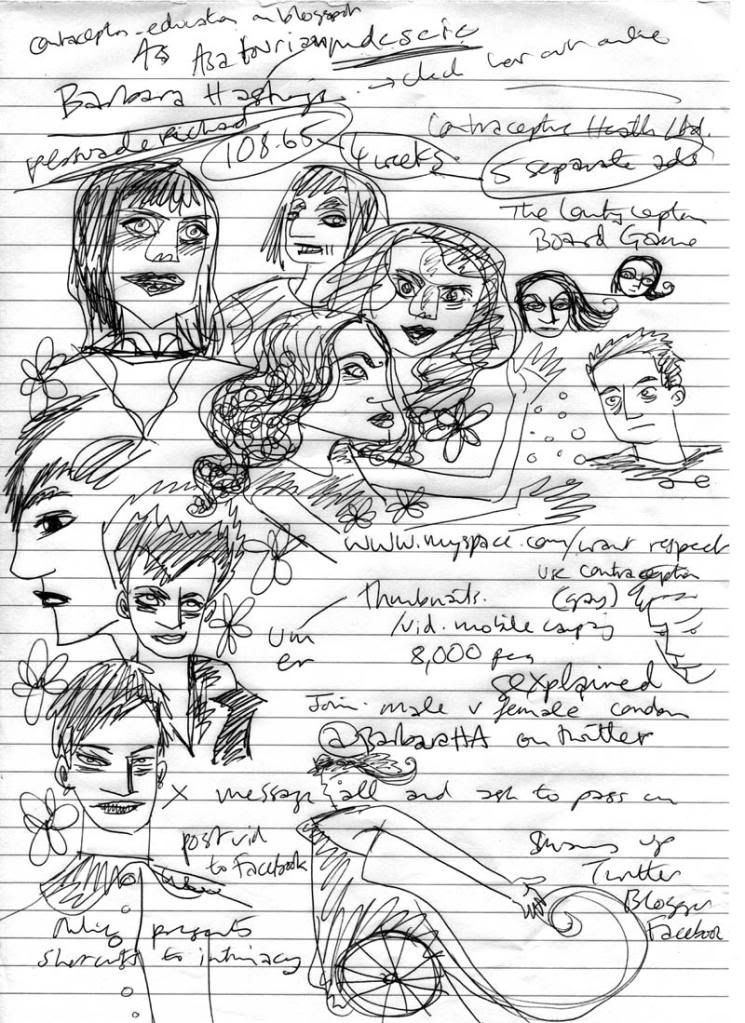 contraception-education on blogspot
As
Barbara Hastings → check her out online
persuade richard
108.65 4 weeks 5 separate ads
Contraceptive Health Ltd.
The Contraception
Board Game
www.myspace.com/want respect
UK contraception
thumbnails. (gray)
/vid. mobile
Um
er 8,000
sexplained
Join. male v female condom
@BarbaraHA on twitter
x message all and ask to pass on
post vid
to Facebook
up
Twitter
Blogger
Facebook
presents
shortcuts to intimacy